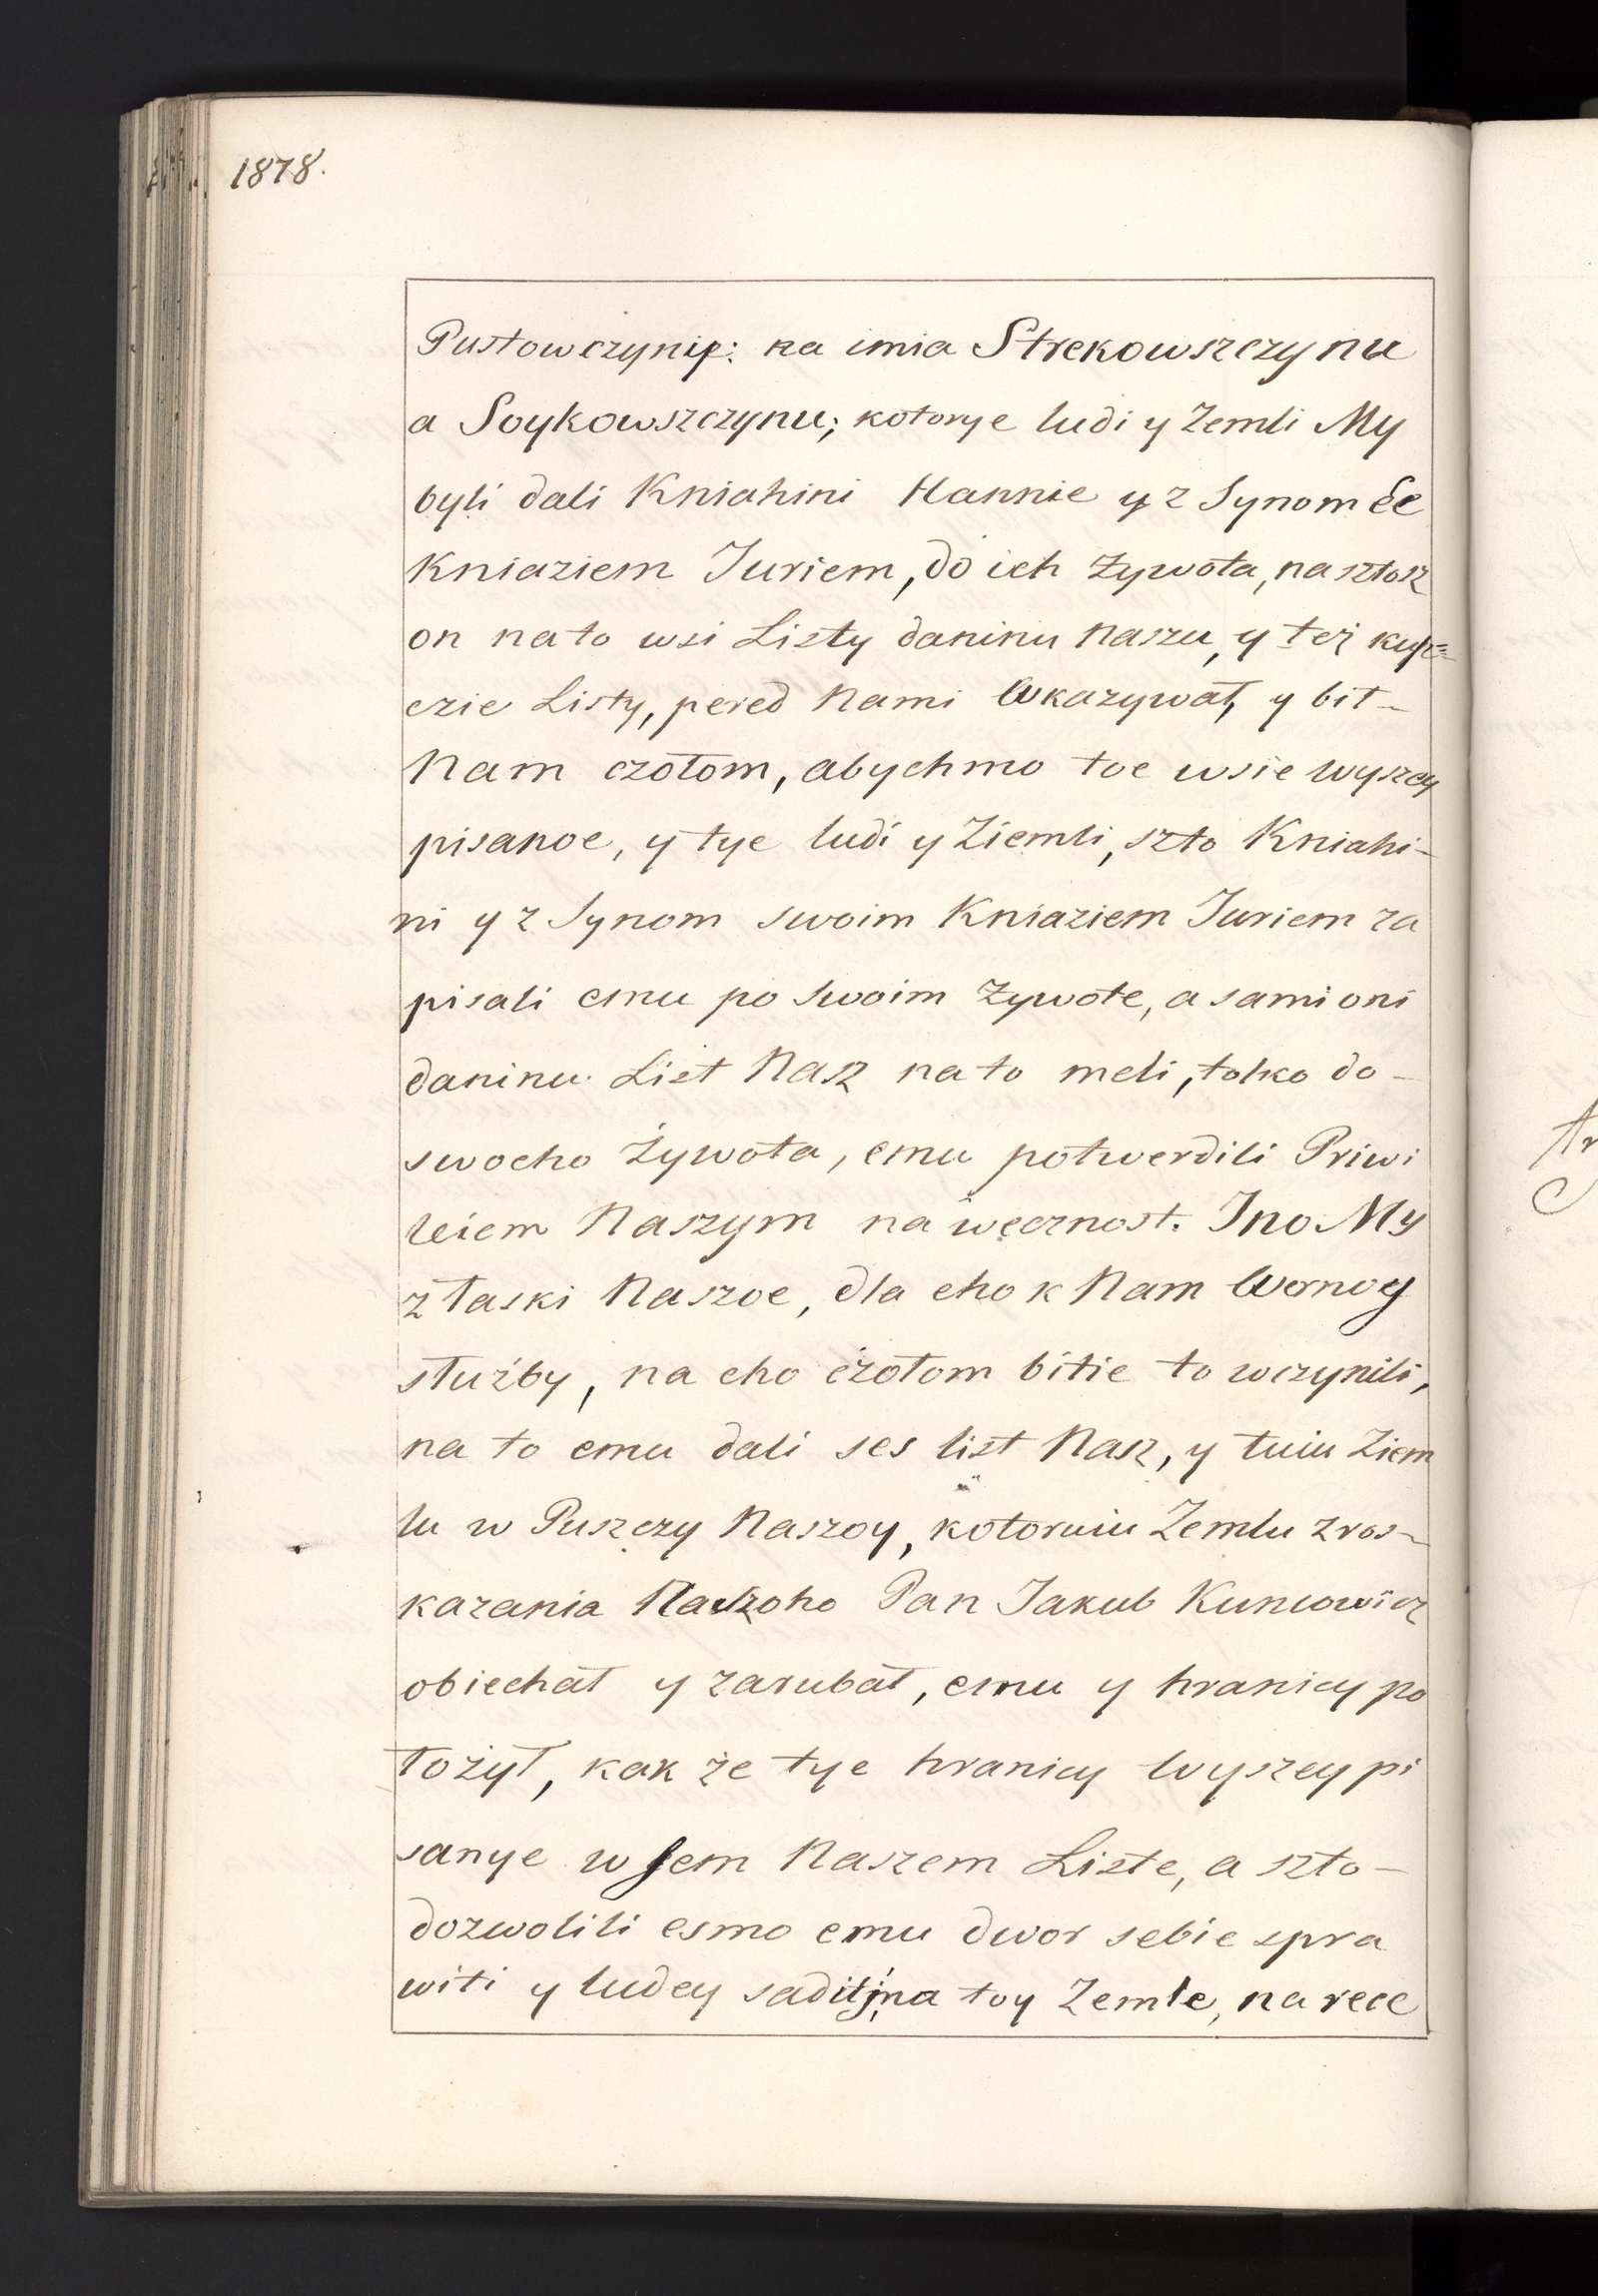 1878.
Pustowczynip: na imia Strekowszczynu
a Soykowszczynu; kotorye ludi y Zemli My
byli dali Kniahini Hannie y z Synom Ee
Kniaziem Juriem, do ich Żywota, na sztosz
on na to wsi Listy daninu Naszu, y też kup=
czie Listy, pered Nami Wkazywał, y bił-
Nam czołom, abychmo toe wsie wyszey
pisanoe, y tye ludi y Ziemli, szto Kniahi-
ni y z Synom swoim Kniaziem Juriem za
pisali emu po swoim Żywote, a sami oni
daninu List Nasz na to meli, tolko do-
swoeho Żywota, emu potwerdili Priwi
leiem Naszym na węcznost. Ino My
z łaski Naszoe, dla eho k Nam Wernoy
służby, na eho czołom bitie to wczynili,
na to emu dali ses list Nasz, y tuiu Ziem
lu w Puszczy Naszoy, kotoruiu Zemlu z ros-
kazania Naszoho Pan Jakub Kuncowicz
obiechał y zarubał, emu y hranicy po
łożył, kak że tye hranicy Wyszey pi
sanye w sem Naszem Liste, a szto-
dozwolili esmo emu dwor sebie spra
witi y ludey saditj, na toy Zemle, na rece
Ar